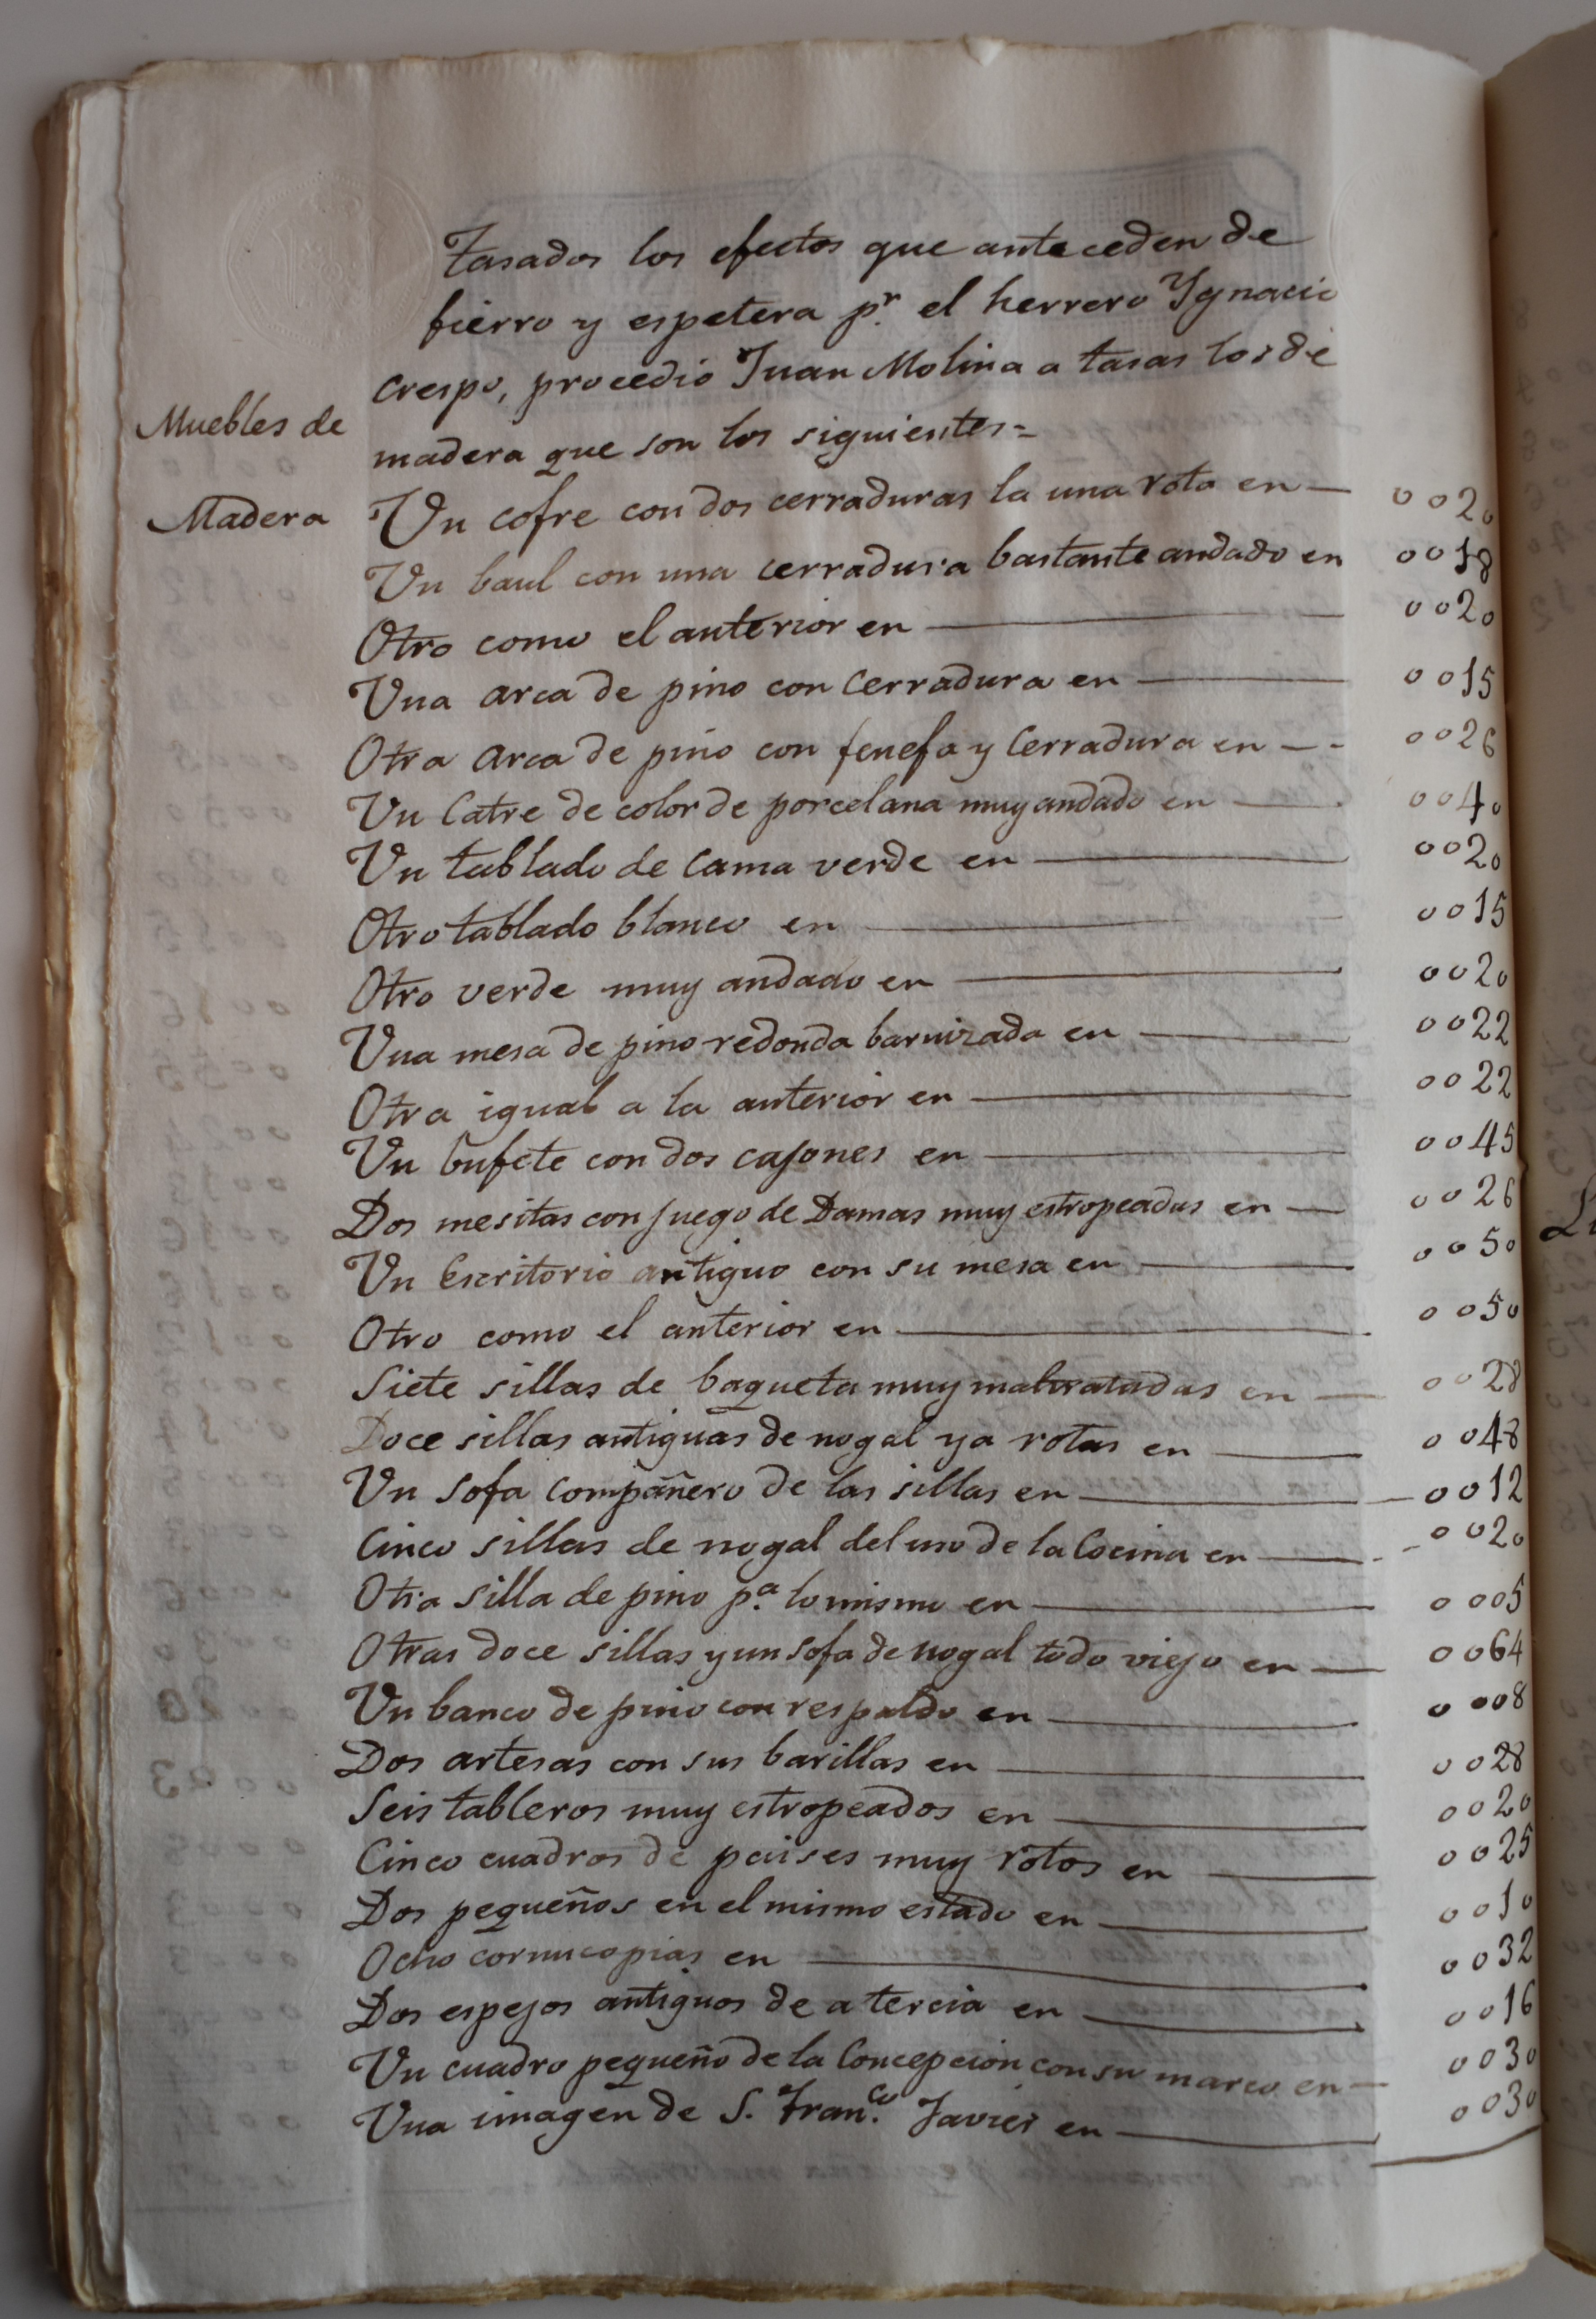 Tasados los efectos que anteceden de
fierro y espetera pr. el herrero Ygnacio
Crespo, procedio Juan Molina a tasar los de
Muebles de
madera que son los siguientes=
Madera
Un cofre con dos cerraduras la una rota en — 0020
Un baul con una cerradura bastante andado en 0018
Otro como el anterior en — 0020
Una arca de pino con cerradura en — 0015
Otra arca de pino con fenefa y cerradura en — - 0026
Un Catre de color de porcelana muy andado en — 0040
Un tablado de cama verde en — 0020
Otro tablado blanco en — 0015
Otro verde muy andado en — 0020
Una mesa de pino redonda barnizada en — 0022
Otra igual a la anterior en — 0022
Un bufete con dos cajones en — 0045
Dos mesitas con juego de Damas muy estropeadas en — 0026
Un Escritorio antiguo con su mesa en — 0050
Otro como el anterior en — 0050
Siete sillas de baqueta muy maltratadas en — 0028
Doce sillas antiguas de nogal ya rotas en — 0048
Un sofa compañero de las sillas en — 0012
Cinco sillas de nogal del uso de la Cocina en — 0020
Otra silla de pino pa. lo mismo en — 0005
Otras doce sillas y un sofa de nogal todo viejo en — 0064
Un banco de pino con respaldo en — 0008
Dos artesas con sus barillas en — 0028
Seis tableros muy estropeados en — 0020
Cinco cuadros de paises muy rotos en — 0025
Dos pequeños en el mismo estado en — 0010
Ocho cornucopias en — 0032
Dos espejos antiguos de a tercia en — 0016
Un cuadro pequeño de la Concepcion con su marco en — 0030
Una imagen de S. Franco. Javier en — 0030